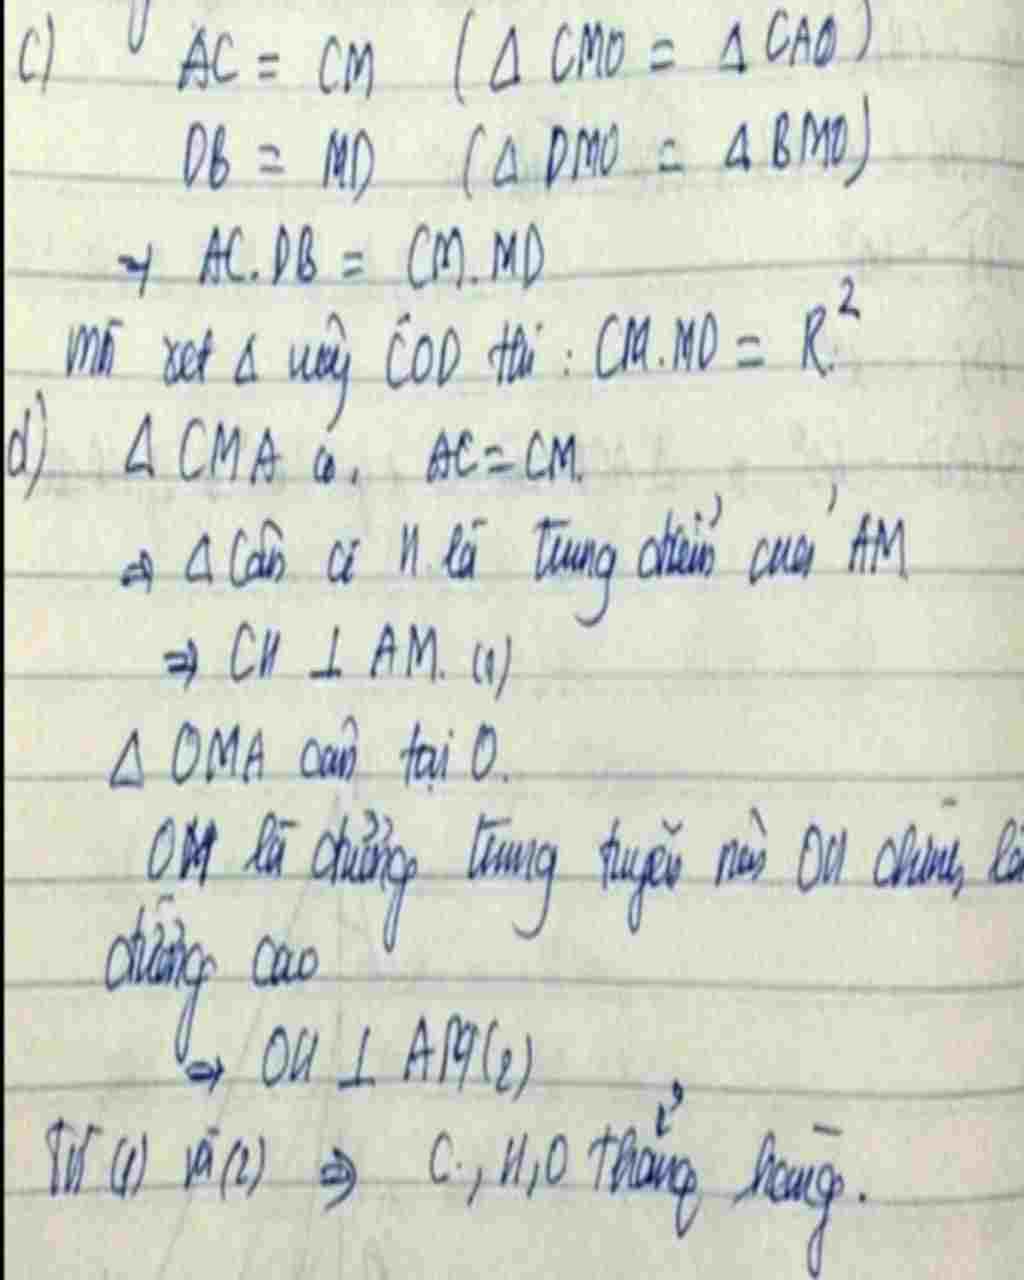 c) AC = CM (Δ CMO = Δ CAO)
DB = MD (Δ DMO = Δ BMO)
→ AC.DB = CM.MD
mà xét Δ vuông COD thì : CM.MD = R²
d) Δ CMA có. AC = CM.
⇒ Δ Cân có H là trung điểm của AM
⇒ CH ⊥ AM. (1)
Δ OMA cân tại O.
OH là đường trung tuyến nên OH chính là
đường cao
⇒ OH ⊥ AM (2)
Từ (1) và (2) ⇒ C, H, O thẳng hàng.